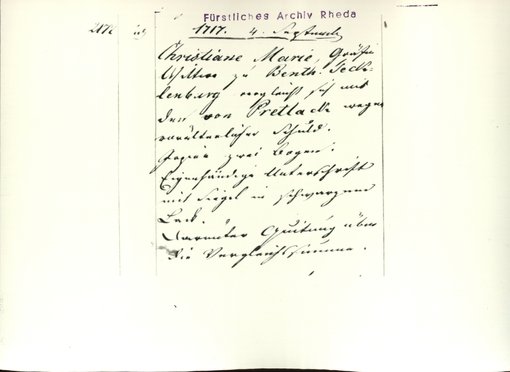 Fürstliches Archiv Rheda
1717. 4. September
Christiane Marie, Gräfin
Wittwe zu Benth. Teck-
lenburg vergleicht sich mit
den von Pretlack wegen
vorälterlicher Schuld.
Papier zwei Bogen.
Eigenhändige Unterschrift
mit Siegel in schwarzem
Lack.
Darunter Quittung über
die Vergleichssumme.